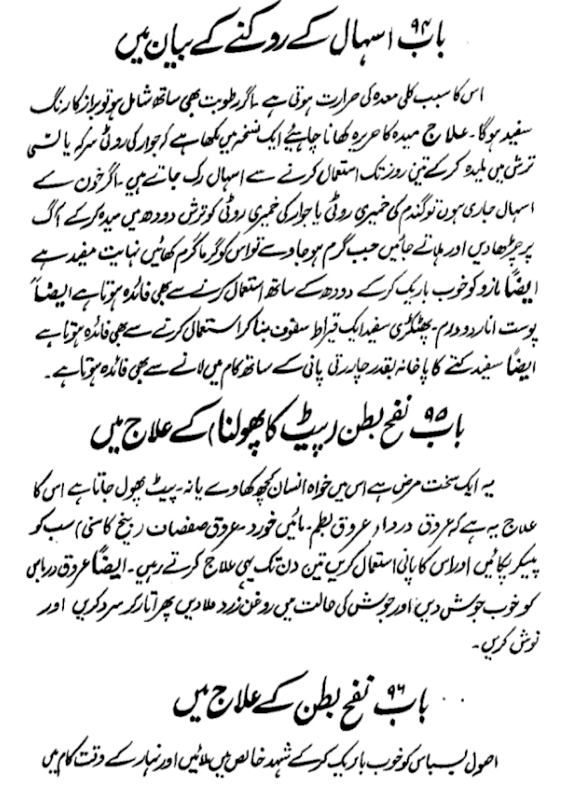 باب ۹۴ اسہال کے روکنے کے بیان میں
اس کا سبب کلی معدہ کی حرارت ہوتی ہے ۔ اگر رطوبت بھی ساتھ شامل ہو تو براز کا رنگ
سفید ہوگا ۔ علاج میدہ کا حریرہ کھانا چاہئیے ایک نسخہ میں لکھا ہے کہ جوار کی روٹی سرکہ یا لسّی
ترش میں ملیدہ کرکے تین روز تک استعمال کرنے سے اسہال رک جاتے ہیں ۔ اگر خون کے
اسہال جاری ہوں تو گندم کی خمیری روٹی یا جوار کی خمیری روٹی کو ترش دودھ میں میدہ کرکے آگ
پر چڑھا دیں اور ہلاتے جائیں جب گرم ہو جاوے تو اس کو گرما گرم کھائیں نہایت مفید ہے
ایضًا مازو کو خوب باریک کرکے دودھ کے ساتھ استعمال کرنے سے بھی فائدہ ہوتا ہے ایضًا
پوست انار دو درم ۔ پھٹکڑی سفید ایک قیراط سفوف بنا کر استعمال کرنے سے بھی فائدہ ہوتا ہے
ایضًا سفید کتے کا پاخانہ بقدر چار رتی پانی کے ساتھ کام میں لانے سے بھی فائدہ ہوتا ہے ۔
باب ۹۵ نفح بطن (پیٹ کا پھولنا) کے علاج میں
یہ ایک سخت مرض ہے اس میں خواہ انسان کچھ کھاوے یا نہ ۔ پیٹ پھول جاتا ہے اس کا
علاج یہ ہے کہ عروق دردار عروق بطم ۔ مائیں خورد ۔ عروق صفصات (بیخ کاسنی) سب کو
پیکر پکائیں اور اس کا پانی استعمال کریں تین دن تک یہی علاج کرتے رہیں ۔ ایضًا عروق دریاس
کو خوب جوش دیں اور جوش کی حالت میں روغن زرد ملا دیں پھر اتار کر سرد کریں اور
نوش کریں ۔
باب ۹۶ نفح بطن کے علاج میں
اصول لبسباس کو خوب باریک کرکے شہد خالص میں ملائیں اور نہار کے وقت کام میں